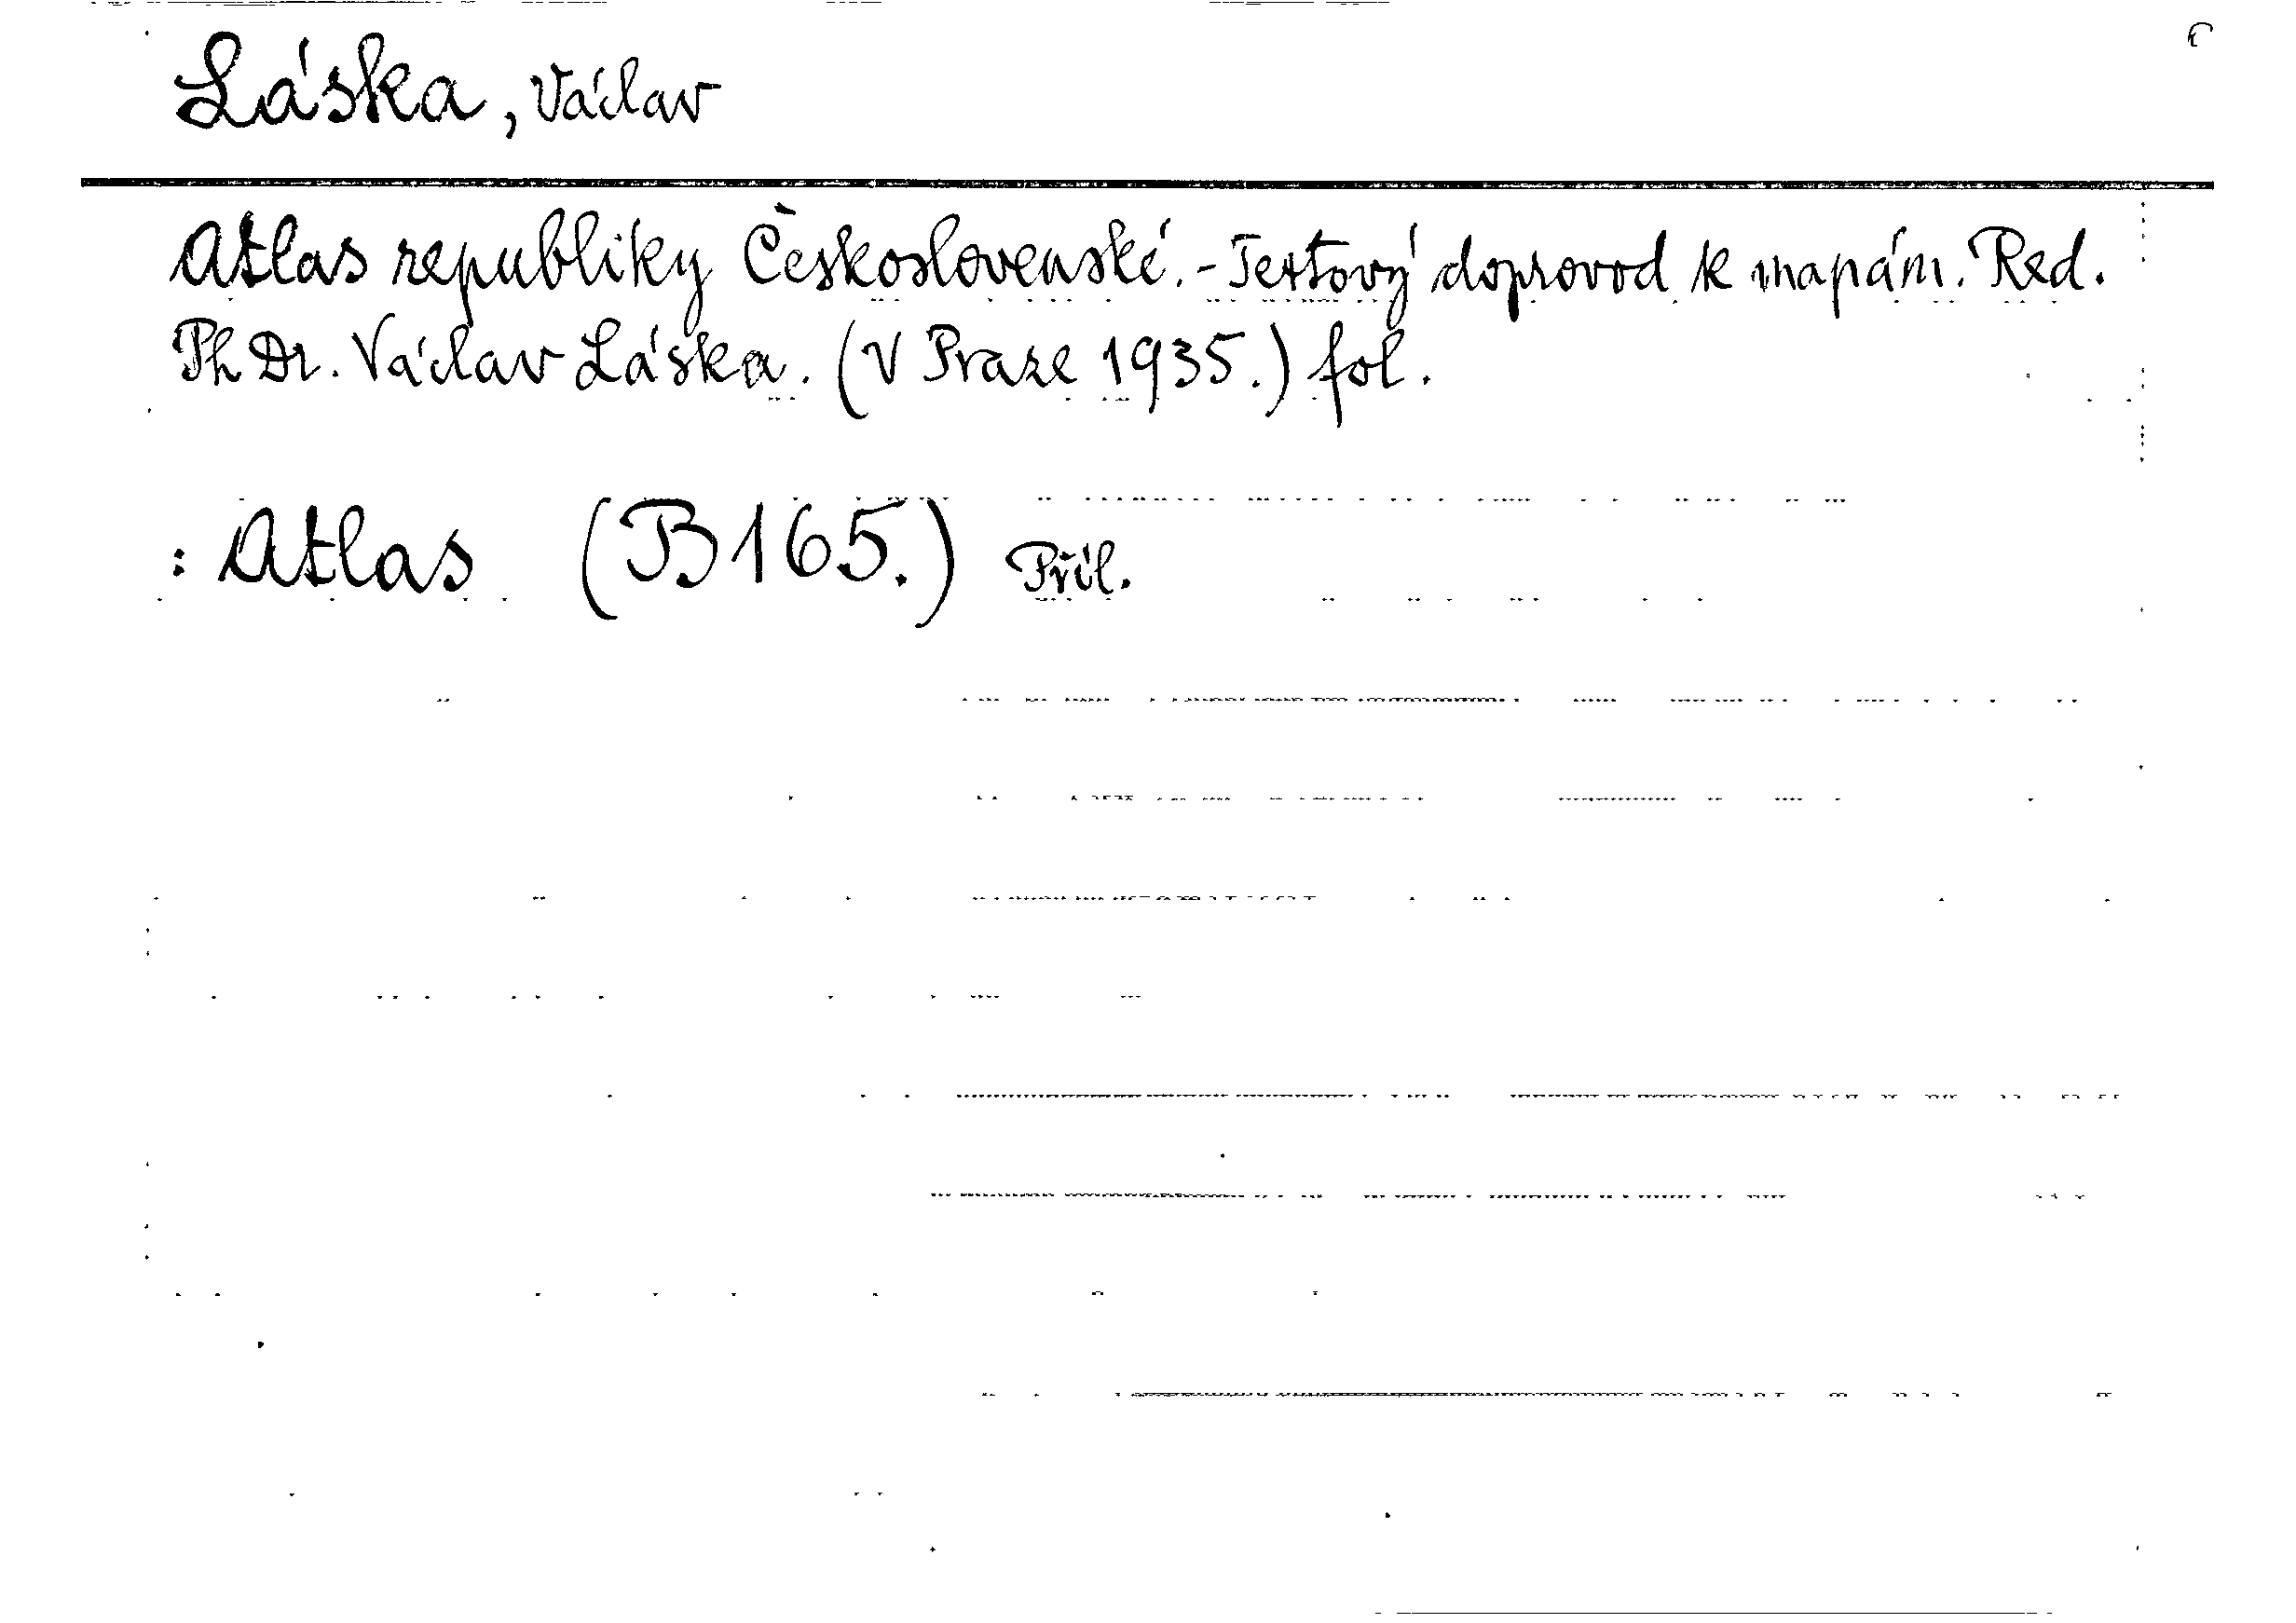 Láska, Václav
Atlas republiky Československé. - Textový doprovod k mapám. Red.
Ph Dr. Václav Láska. (V Praze 1935.) fol.
: Atlas (B165.) Příl.